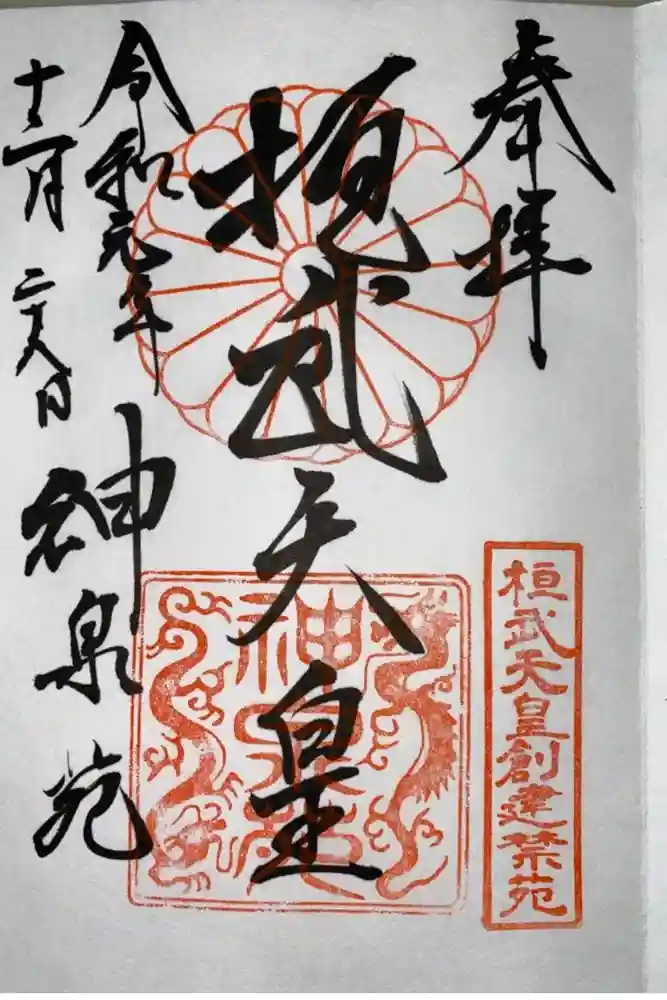 奉拝
桓武天皇創建禁苑
桓武天皇
神泉苑
令和元年
十二月二十八日
神泉苑